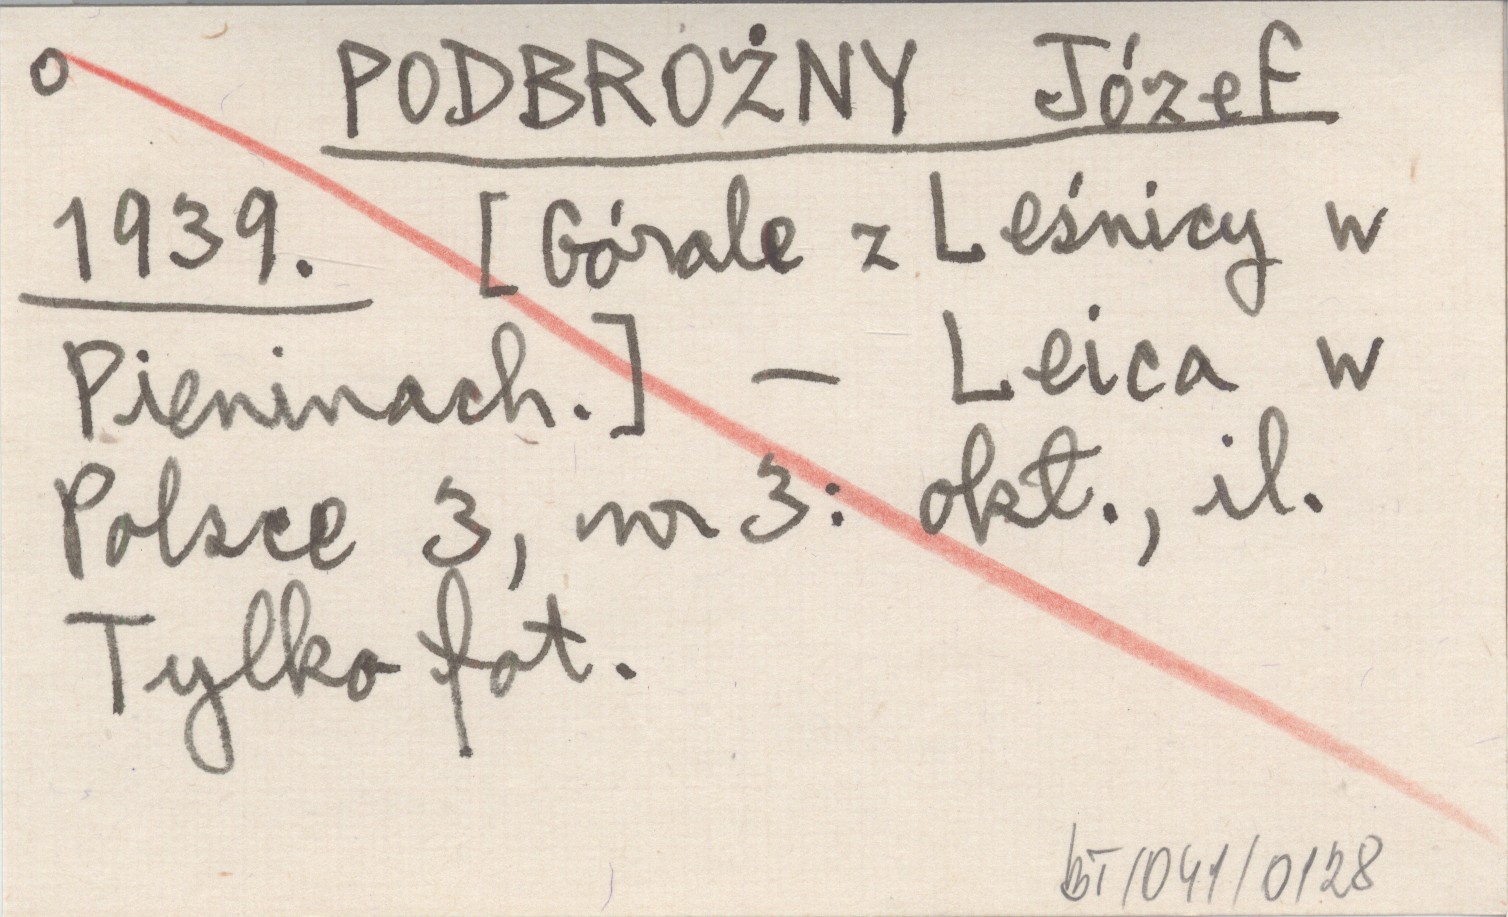 o PODBROŻNY Józef
1939. [Górale z Leśnicy w
Pieninach.] — Leica w
Polsce 3, nr 3: okł., il.
Tylko fot.
BT/041/0128